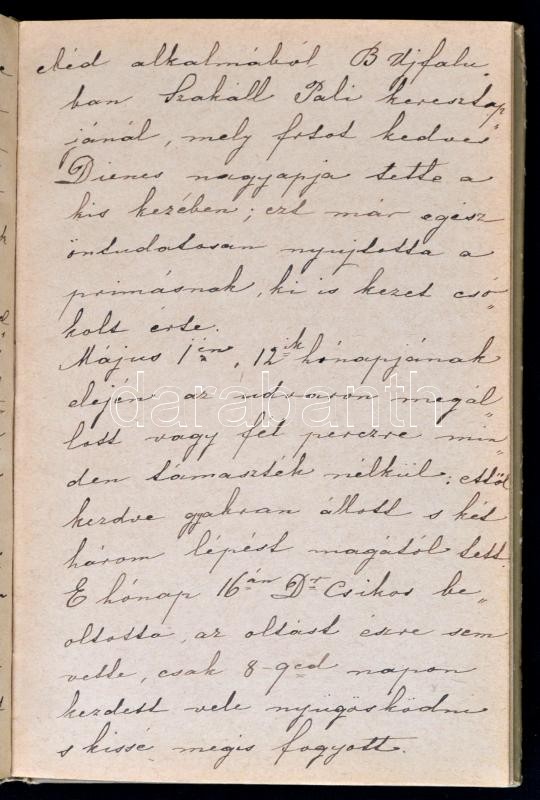 céd alkalmából B Ujfalu„
ban Szakáll Pali keresztap„
jánál, mely frtot kedves
Dienes nagyapja tette a
kis kezében; ezt már egész
öntudatosan nyujtotta a
primásnak, ki is kezet csó„
kolt érte.
Május 1én, 12ik hónapjának
elején az udvaron megál„
lott vagy fél perczre min„
den támaszték nélkül; ettöl
kezdve gyakran állott s két
három lépést magától tett.
E hónap 16án Dr Csikos be„
oltotta, az oltást észre sem
vette, csak 8-9ed napon
kezdett vele nyügösködni
s kissé mégis fogyott.
darabanth